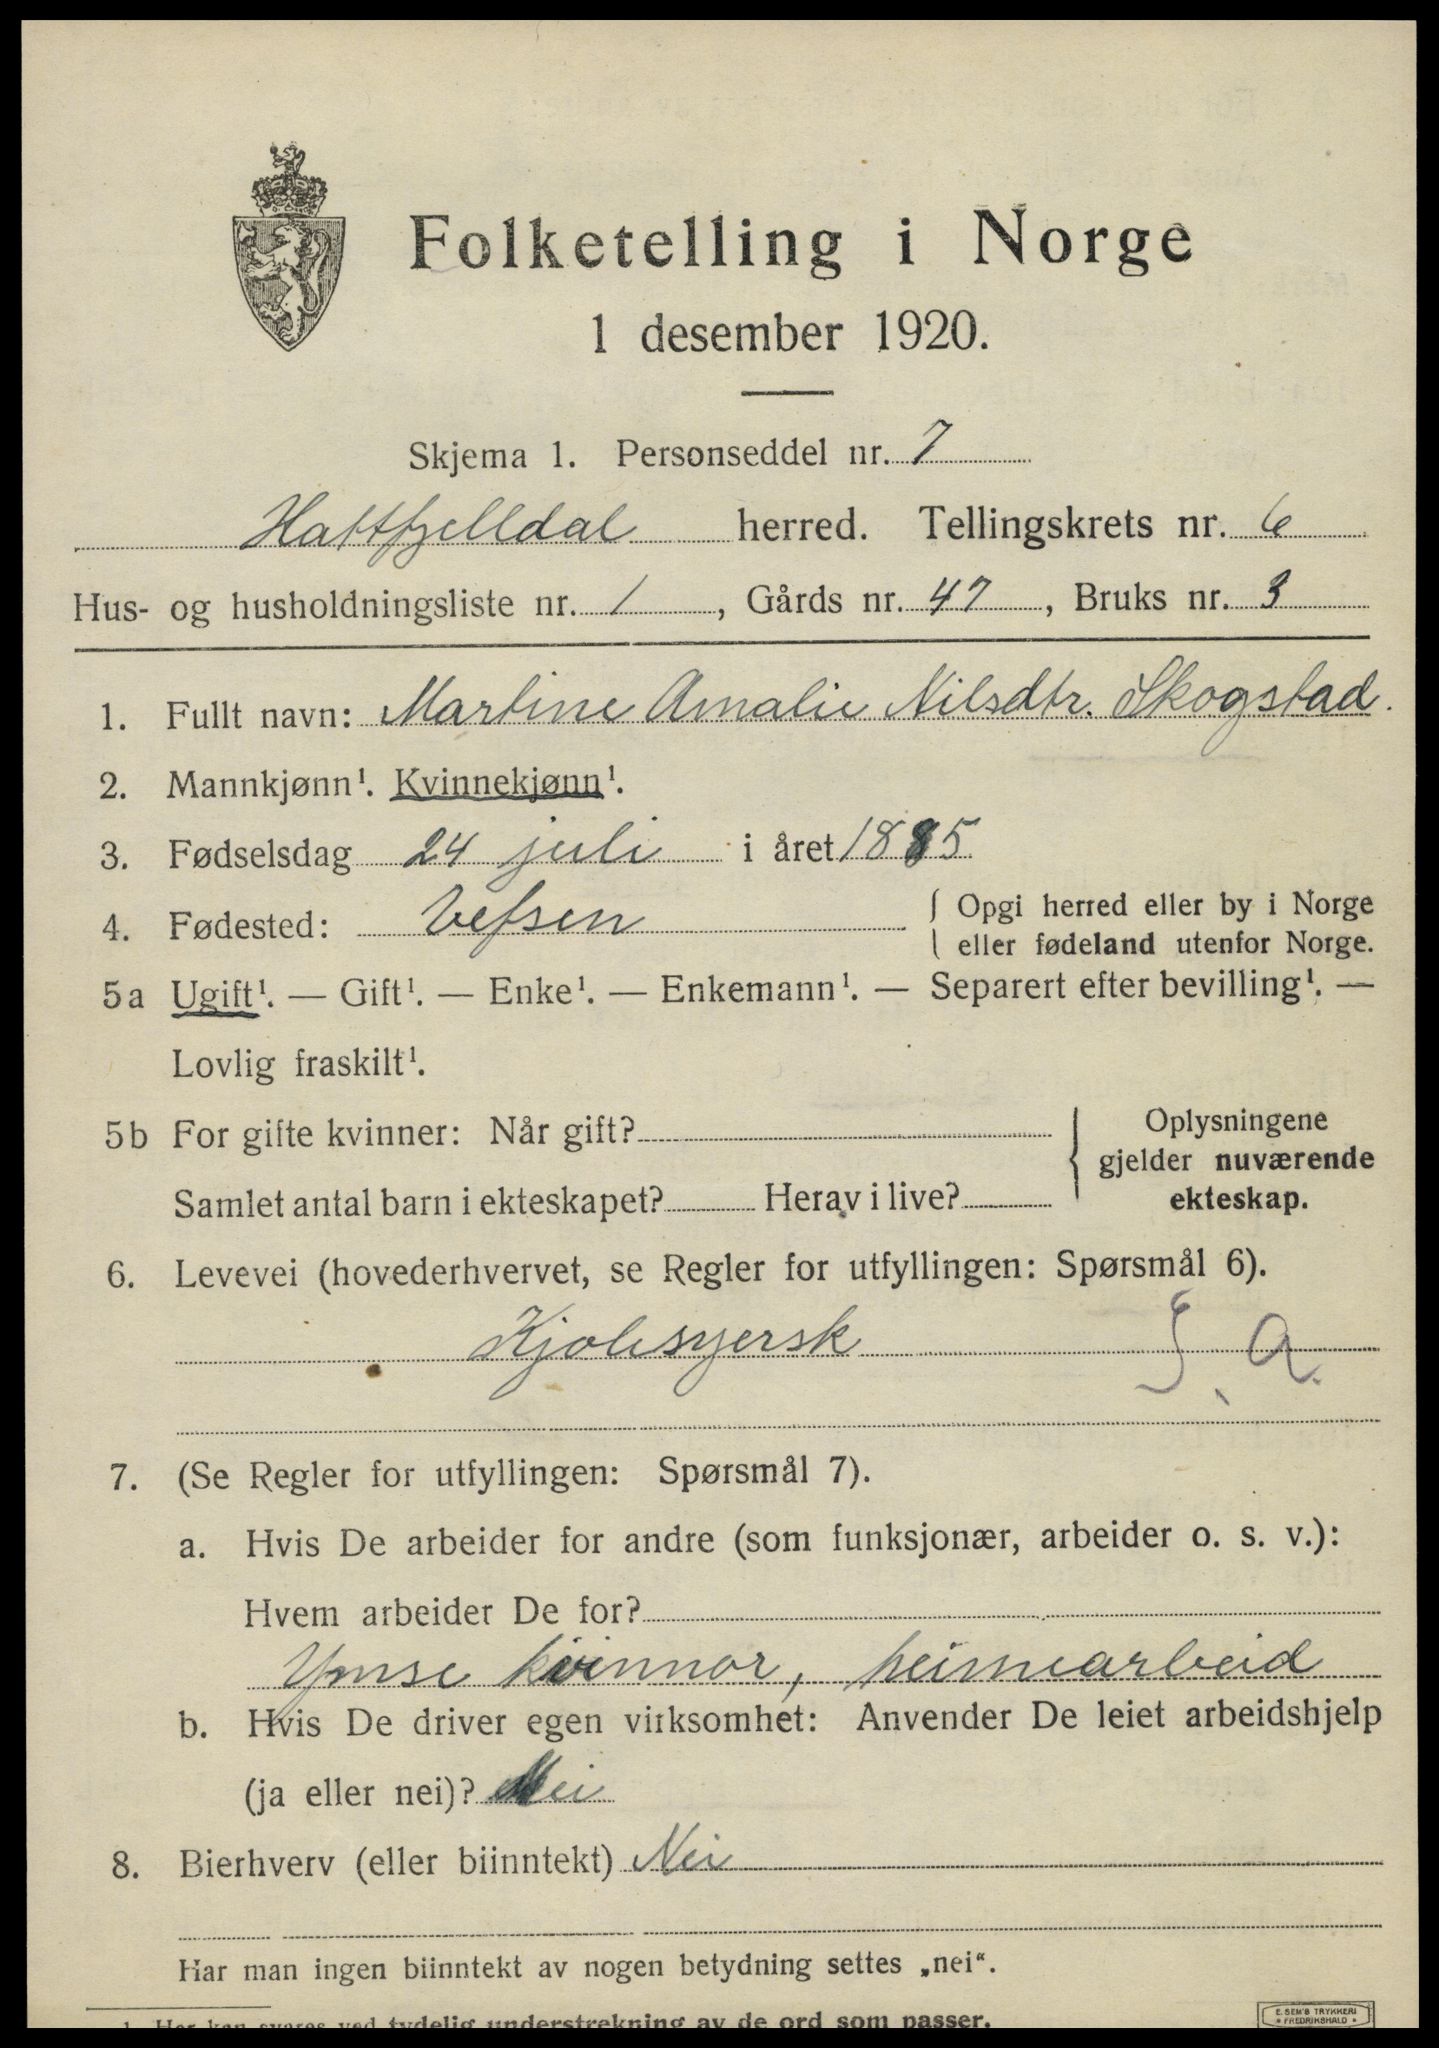 Folketelling i Norge
1 desember 1920.
Skjema 1. Personseddel nr. 7
Hattfjelldal herred. Tellingskrets nr. 6
Hus- og husholdningsliste nr. 1, Gårds nr. 47, Bruks nr. 3
1. Fullt navn: Martine Amalie Nilsdtr. Skogstad.
2. Mannkjønn¹. Kvinnekjønn¹.
3. Fødselsdag 24 juli i året 1885
4. Fødested: Vefsen { Opgi herred eller by i Norge
eller fødeland utenfor Norge.
5a Ugift¹. — Gift¹. — Enke¹. — Enkemann¹. — Separert efter bevilling¹. —
Lovlig fraskilt¹.
5b For gifte kvinner: Når gift? { Oplysningene
gjelder nuværende
Samlet antal barn i ekteskapet? Herav i live? ekteskap.
6. Levevei (hovederhvervet, se Regler for utfyllingen: Spørsmål 6).
Kjolesyersk
7. (Se Regler for utfyllingen: Spørsmål 7).
a. Hvis De arbeider for andre (som funksjonær, arbeider o. s. v.):
Hvem arbeider De for?
Ymse kvinnor, heimearbeid
b. Hvis De driver egen virksomhet: Anvender De leiet arbeidshjelp
(ja eller nei)? Nei
8. Bierhverv (eller biinntekt) Nei
Har man ingen biinntekt av nogen betydning settes „nei“.
1. Her kan svares ved tydelig understrekning av de ord som passer.
E. SEM'S TRYKKERI
FREDRIKSHALD